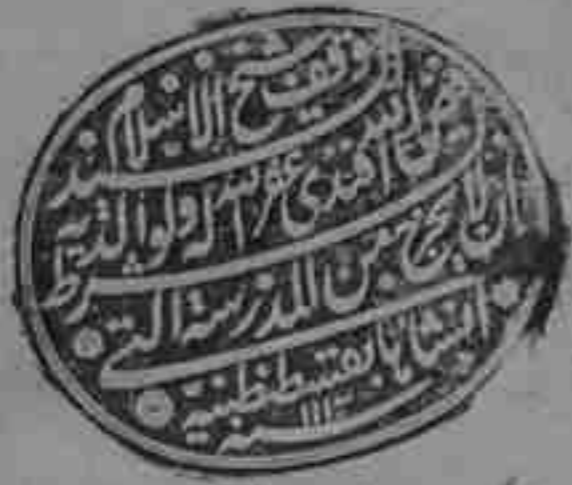 وقف شيخ الاسلام
السيد فيض الله افندي غفر الله له ولوالديه
بشرط ان لا يخرج من المدرسة التي
انشاها بقسطنطينية
سنة ١١١٢